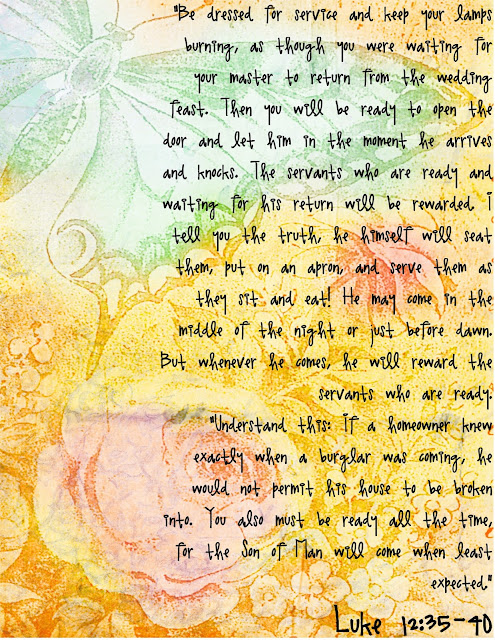 "Be dressed for service and keep your lamps
burning, as though you were waiting for
your master to return from the wedding
feast. Then you will be ready to open the
door and let him in the moment he arrives
and knocks. The servants who are ready and
waiting for his return will be rewarded. I
tell you the truth, he himself will seat
them, put on an apron, and serve them as
they sit and eat! He may come in the
middle of the night or just before dawn.
But whenever he comes, he will reward the
servants who are ready.
"Understand this: If a homeowner knew
exactly when a burglar was coming, he
would not permit his house to be broken
into. You also must be ready all the time,
for the Son of Man will come when least
expected."
Luke 12:35-40